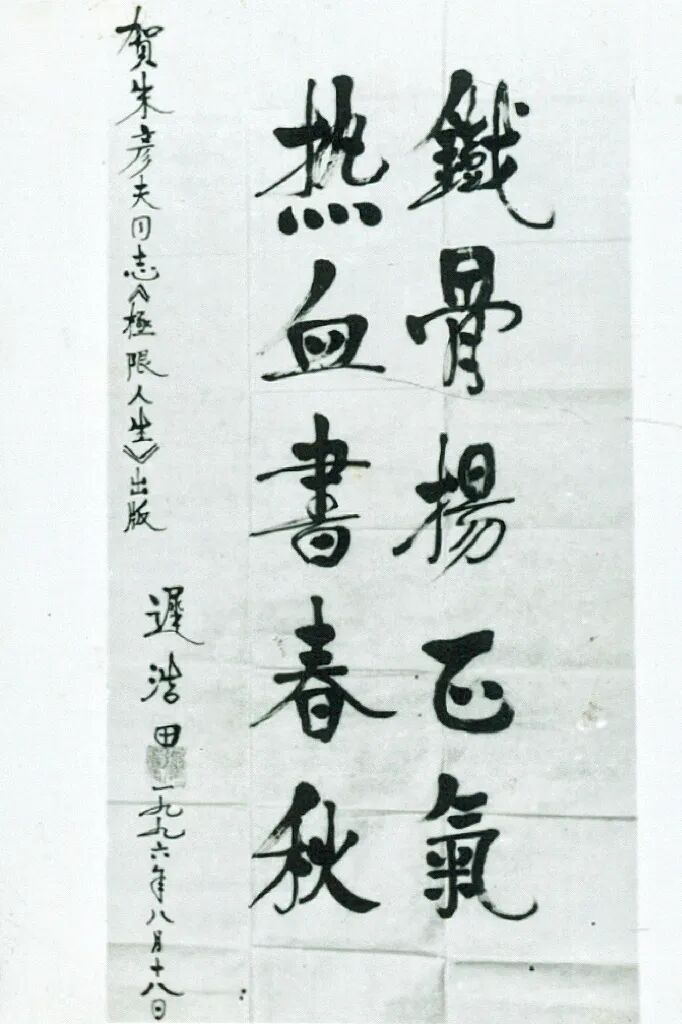 鐵骨揚正氣
热血書春秋
賀朱彦夫同志《極限人生》出版
遲浩田
一九九六年八月十八日